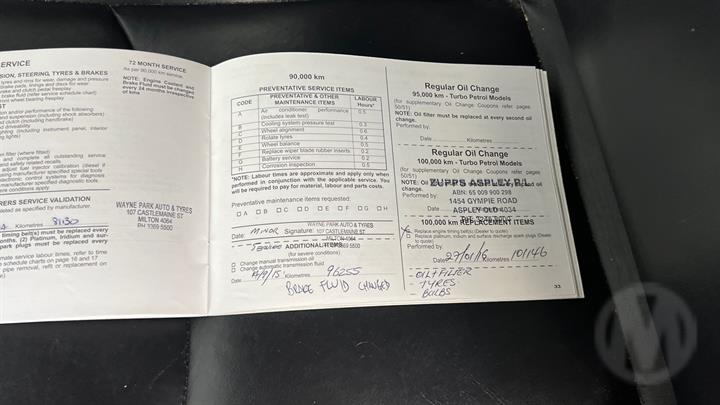 ERVICE
SION, STEERING, TYRES & BRAKES
tyres and rims for wear, damage and pressure
brake pads, linings and discs for wear
and clutch pedal freeplay
brake fluid (refer service schedule chart)
ront wheel bearing freeplay
ST
tion and/or performance of the following
and suspension (including shock absorbers)
and clutch (including handbrake)
d driveability
ghting (including instrument panel, interior
ng lights)
en filter (where fitted)
and complete all outstanding service
and safety related recalls
ERERS SERVICE VALIDATION
ated as specified by manufacturer.
Kilometres 8130
timing belt(s) must be replaced every
onths. (2) Platinum, iridium and sur-
park plugs must be replaced every
imate service labour times, refer to time
e schedule charts on page 16 and 17
72 MONTH SERVICE
As per 90,000 km service.
NOTE: Engine Coolant and
Brake Fluid must be changed
every 24 months irrespective
of kms
WAYNE PARK AUTO & TYRES
107 CASTLEMAINE ST
MILTON 4064
PH 3369 5500
90,000 km
PREVENTATIVE SERVICE ITEMS
CODE PREVENTATIVE & OTHER MAINTENANCE ITEMS LABOUR Hours*
A Air conditioner performance (includes leak test) 0.5
B Cooling system pressure test 0.3
C Wheel alignment 0.6
D Rotate tyres 0.4
E Wheel balance 0.5
F Replace wiper blade rubber inserts 0.2
G Battery service 0.2
H Corrosion inspection 0.5
*NOTE: Labour times are approximate and apply only when
performed in conjunction with the applicable service. You
will be required to pay for material, labour and parts costs.
Preventative maintenance items requested:
A B C D E F G H
WAYNE PARK AUTO & TYRES
Date MINOR Signature: 107 CASTLEMAINE ST
MILTON 4064
SERVICE ADDITIONAL ITEMS 3369 5500
(for severe conditions)
Change manual transmission oil
Change automatic transmission fluid
Date Kilometres 96255
BRAKE FLUID CHANGED
Regular Oil Change
95,000 km - Turbo Petrol Models
(for supplementary Oil Change Coupons refer pages
50/51)
NOTE: Oil filter must be replaced at every second oil
change.
Performed by:
Date Kilometres
Regular Oil Change
100,000 km - Turbo Petrol Models
(for supplementary Oil Change Coupons refer pages
50/51)
NOTE: Oil
ZUPPS ASPLEY P/L
ABN: 65 009 900 298
Performed by:
1454 GYMPIE ROAD
ASPLEY QLD 4034
100,000 km REPLACEMENT ITEMS
Replace engine timing belt(s) (Dealer to quote)
Replace platinum, iridium and surface discharge spark plugs (Dealer
to quote)
Performed by:
Date 27/01/16 Kilometres 101146
- OIL FILTER
- TYRES
- BULBS
33